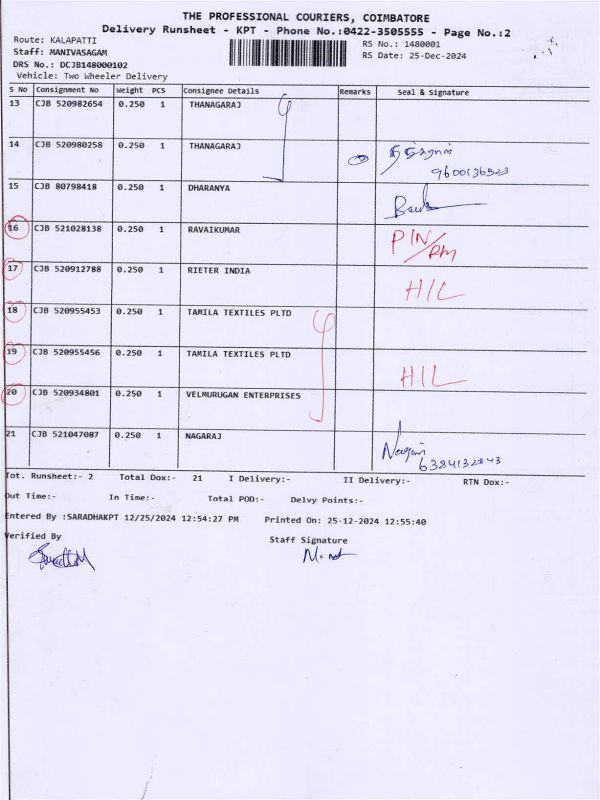 THE PROFESSIONAL COURIERS, COIMBATORE
Delivery Runsheet - KPT - Phone No.:0422-3505555 - Page No.:2
Route: KALAPATTI
RS No.: 1480001
Staff: MANIVASAGAM
RS Date: 25-Dec-2024
DRS No.: DCJB148000102
Vehicle: Two Wheeler Delivery
S No Consignment No Weight PCS Consignee Details Remarks Seal & Signature
13 CJB 520982654 0.250 1 THANAGARAJ
14 CJB 520980258 0.250 1 THANAGARAJ
15 CJB 80798418 0.250 1 DHARANYA
16 CJB 521028138 0.250 1 RAVAIKUMAR PIN/RM
17 CJB 520912788 0.250 1 RIETER INDIA H/L
18 CJB 520955453 0.250 1 TAMILA TEXTILES PLTD
19 CJB 520955456 0.250 1 TAMILA TEXTILES PLTD H/L
20 CJB 520934801 0.250 1 VELMURUGAN ENTERPRISES
21 CJB 521047087 0.250 1 NAGARAJ 6384132843
Tot. Runsheet:- 2 Total Dox:- 21 I Delivery:- II Delivery:- RTN Dox:-
Out Time:- In Time:- Total POD:- Delvy Points:-
Entered By :SARADHAKPT 12/25/2024 12:54:27 PM Printed On: 25-12-2024 12:55:40
Verified By Staff Signature